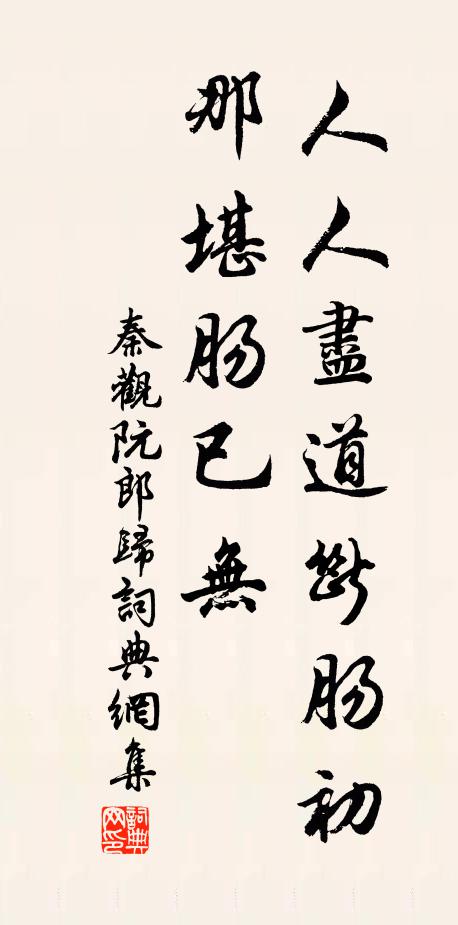 人人盡道斷腸初
那堪腸已無
秦觀阮郎歸詞典網集
詞典网印